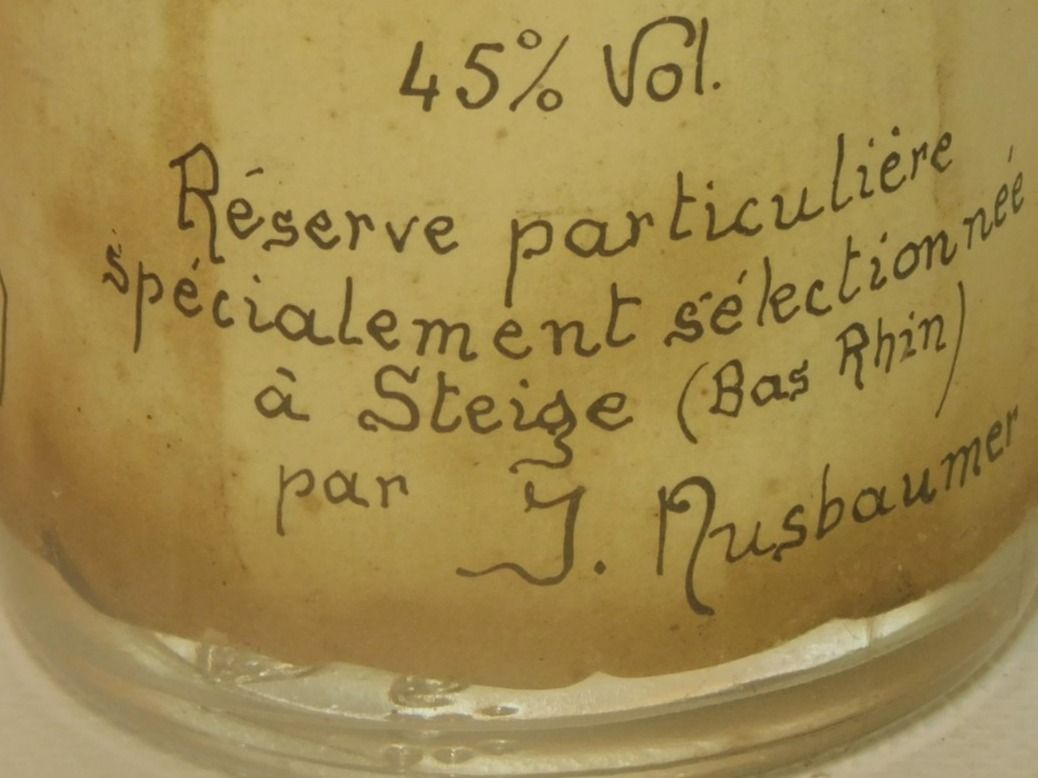 45% Vol.
Réserve particulière
spécialement sélectionnée
à Steige (Bas Rhin)
par J. Nusbaumer